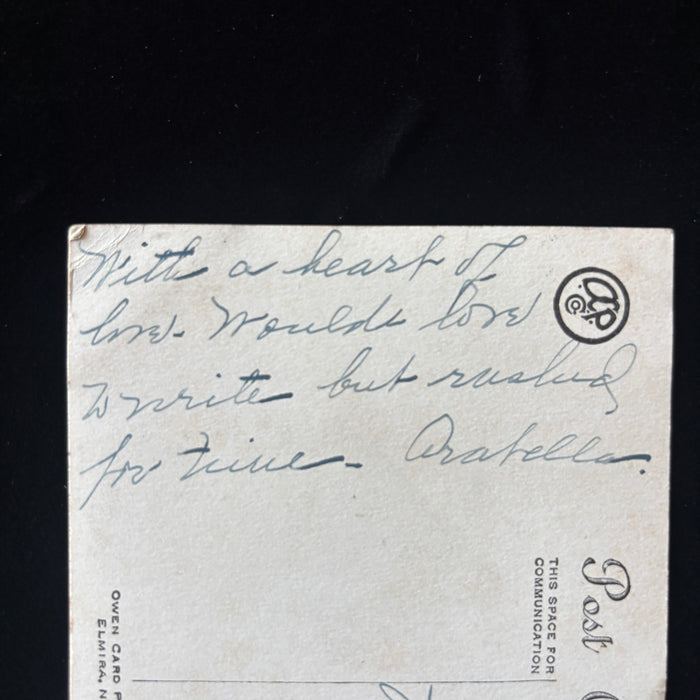 With a heart of
love. Would love
to write but rushed
for time - Arabella.
a.p.
Co.
Post
THIS SPACE FOR
COMMUNICATION
OWEN CARD P
ELMIRA, N